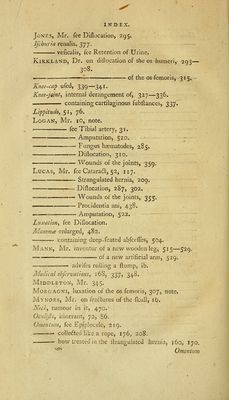 INDEX.
JONES, Mr. ſee Diſlocation, 295.
Iſchuria renalis, 377.
——— veſicalis, ſee Retention of Urine.
KIRKLAND, Dr. on diſlocation of the os humeri, 293—
308.
——————— of the os femoris, 315.
Knee-cap uſed, 339—341.
Knee-joint, internal derangement of, 327—336.
——— containing cartilaginous ſubſtances, 337.
Lippitudo, 51, 76.
LOGAN, Mr. 10, note.
——— ſee Tibial artery, 31.
——— Amputation, 520.
——— Fungus hæmatodes, 285.
——— Diſlocation, 310.
——— Wounds of the joints, 359.
LUCAS, Mr. ſee Cataract, 52, 117.
——— Strangulated hernia, 209.
——— Diſlocation, 287, 302.
——— Wounds of the joints, 355.
——— Procidentia ani, 438.
——— Amputation, 522.
Luxation, ſee Diſlocation.
Mammæ enlarged, 482.
——— containing deep-ſeated abſceſſes, 504.
MANN, Mr. inventor of a new wooden leg, 515—529.
——————— of a new artificial arm, 529.
——— adviſes rolling a ſtump, ib.
Medical obſervations, 168, 337, 348.
MIDDLETON, Mr. 345.
MORGAGNI, luxation of the os femoris, 307, note.
MYNORS, Mr. on fractures of the ſkull, 16.
Neck, tumour in it, 470.
Oculiſts, itinerant, 72, 86.
Omentum, ſee Epiplocele, 219.
——— collected like a rope, 176, 208.
——— how treated in the ſtrangulated hernia, 160, 170.
Omentum